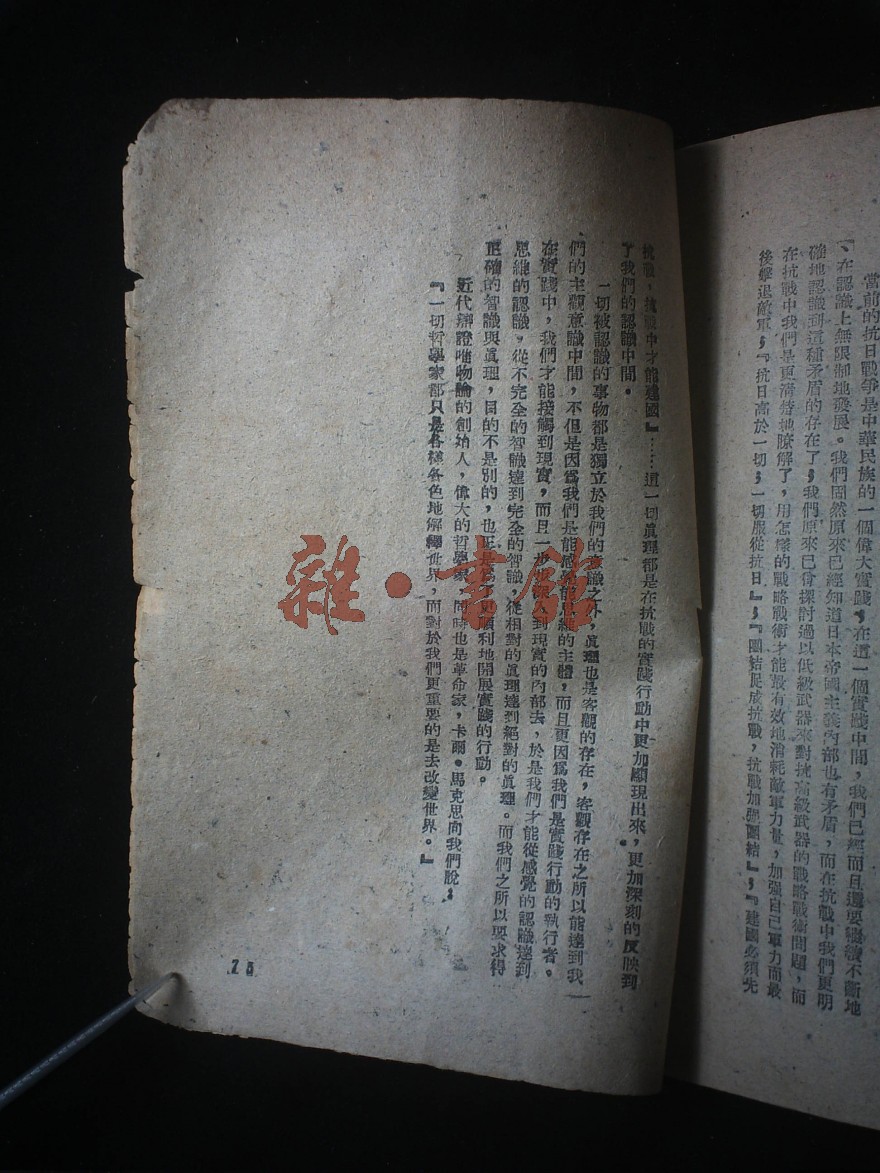 當前的抗日戰爭是中華民族的一個偉大實踐，在這一個實踐中間，我們已經而且還要繼續不斷地
在認識上無限制地發展。我們固然原來已經知道日本帝國主義內部也有矛盾，而在抗戰中我們更明
確地認識到這種矛盾的存在了；我們原來已會探討過以低級武器來對抗高級武器的戰略戰術問題，而
在抗戰中我們是更清楚地瞭解了，用怎樣的戰略戰術才能最有效地消耗敵軍力量，加強自己軍力而最
後擊退敵軍；『抗日高於一切；一切服從抗日』；『團結促成抗戰，抗戰加強團結』；『建國必須先
抗戰，抗戰中才能建國』……這一切眞理都是在抗戰的實踐行動中更加顯現出來，更加深刻的反映到
了我們的認識中間。
一切被認識的事物都是獨立於我們的意識之外，眞理也是客觀的存在，客觀存在之所以能達到我
們的主觀意識中間，不但是因爲我們是能感覺能思維的主體，而且更因爲我們是實踐行動的執行者。
在實踐中，我們才能接觸到現實，而且一步步深入到現實的內部去，於是我們才能從感覺的認識達到
思維的認識，從不完全的智識達到完全的智識，從相對的眞理達到絕對的眞理。而我們之所以要求得
正確的智識與眞理，目的不是別的，也正是爲了更順利地開展實踐的行動。
近代辯證唯物論的創始人，偉大的哲學家，同時也是革命家，卡爾。馬克思向我們說；
『一切哲學家都只是各樣各色地解釋世界，而對於我們更重要的是去改變世界。』
雜·書館